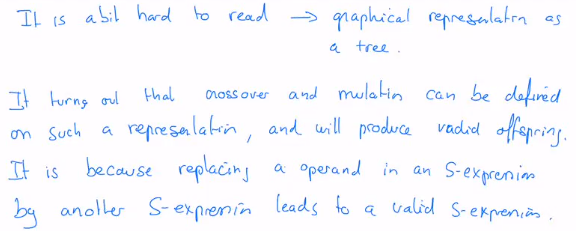 It is a bit hard to read → graphical representation as
a tree.
It turns out that crossover and mutation can be defined
on such a representation, and will produce valid offspring.
It is because replacing a operand in an S-expression
by another S-expression leads to a valid S-expression.